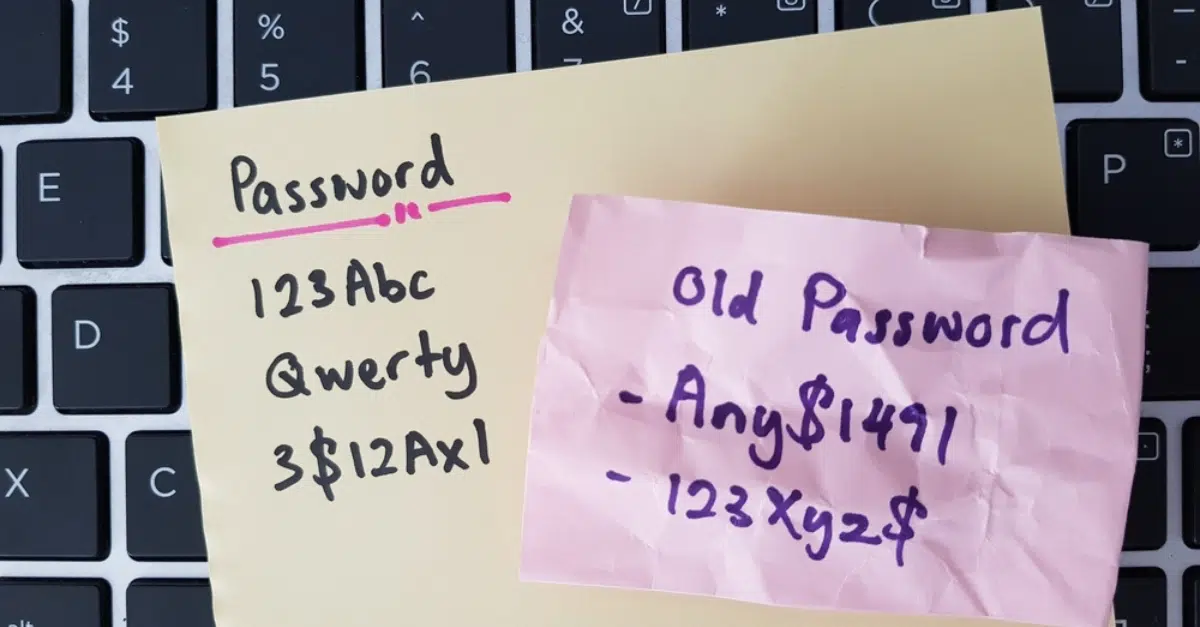 $
4
%
5
^
6
&
7
*
E
P
*
D
X
C
Password
123Abc
Qwerty
3$12Ax1
Old Password
- Any$1491
- 123Xyz$